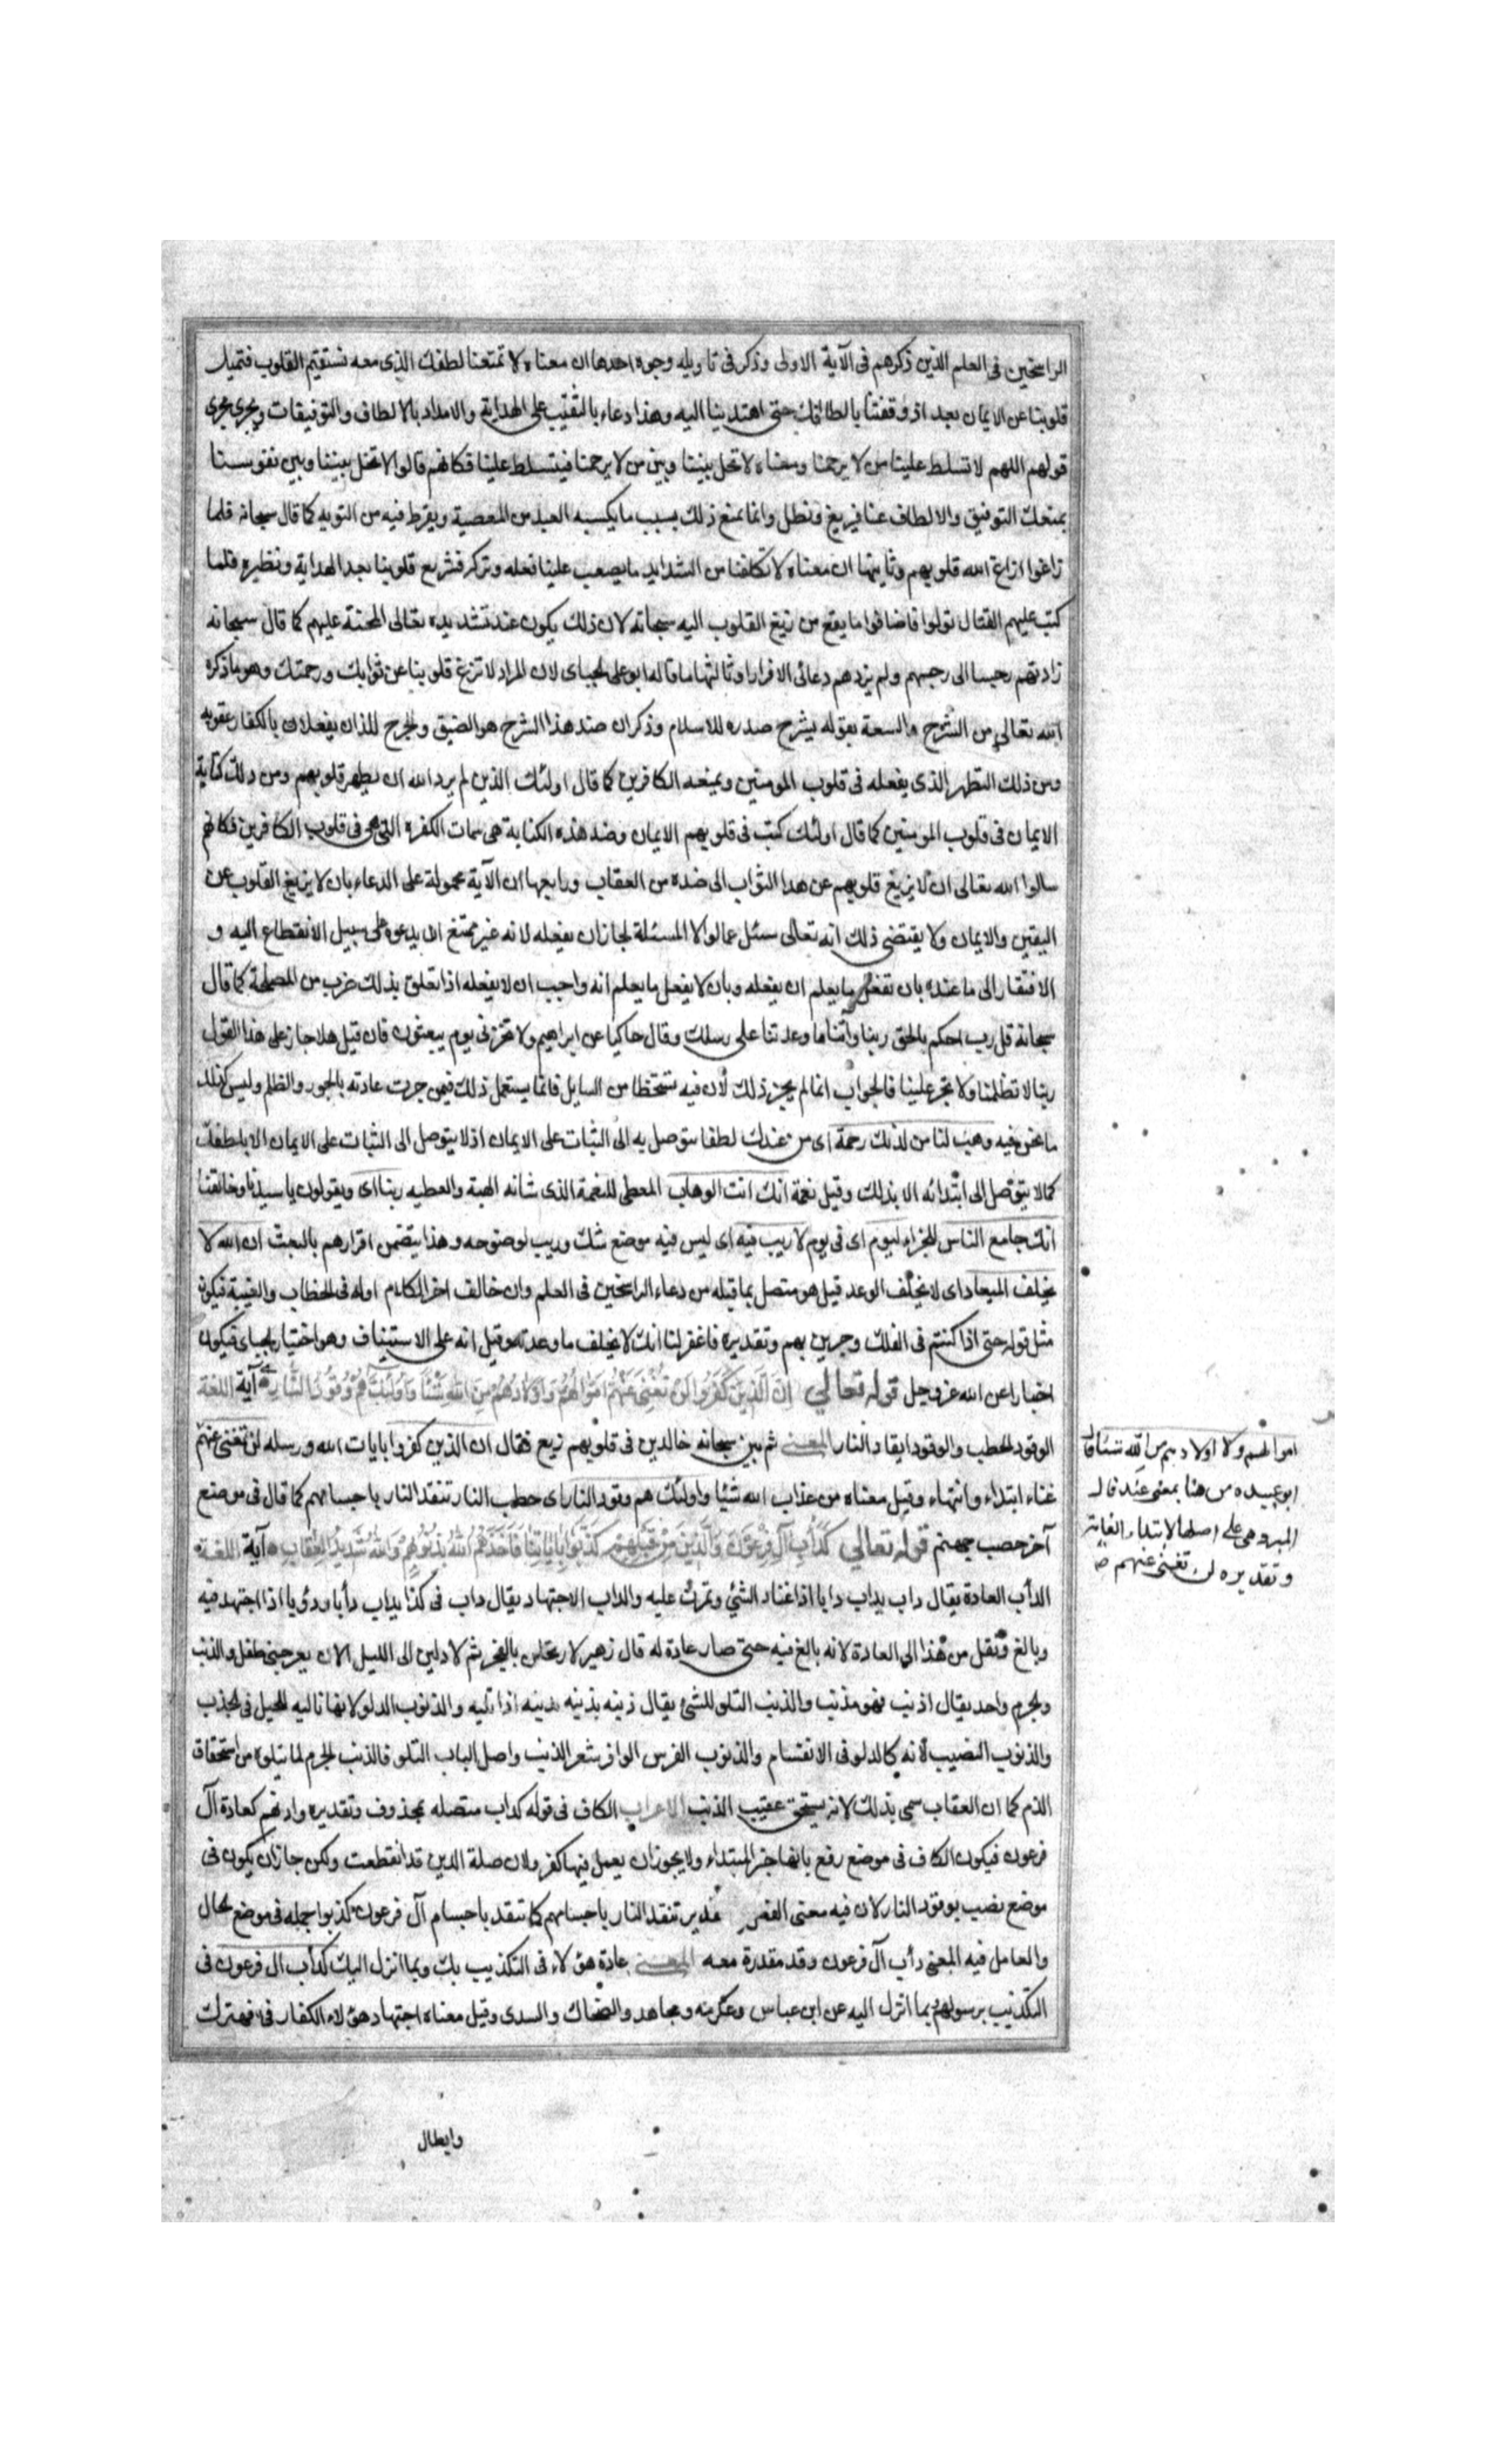 الراسخين فى العلم الذين ذكرهم فى الآية الاولى وذكر فى تاويله وجوه احدها ان معناه لا تمنعنا لطفك الذى معه نستقيم القلوب فتميل
قلوبنا عن الايمان بعد اذ وفقتنا بالطافك حتى اهتدينا اليه وهذا دعاء بالتثبت على الهداية والامداد بالالطاف والتوفيقات ويجرى مجرى
قولهم اللهم لا تسلط علينا من لا يرحمنا ومعناه لا تخل بيننا وبين من لا يرحمنا فيتسلط علينا فكانهم قالوا لا تخل بيننا وبين نفوسنا
بمنعك التوفيق والالطاف عنا فنزيغ ونضل وانما يمنع ذلك بسبب ما يكسبه العبد من المعصية ويفرط فيه من التوبه كما قال سبحانه فلما
زاغوا ازاغ الله قلوبهم وثانيها ان معناه لا تكلفنا من الشدايد ما يصعب علينا فعله وتركه فتزيغ قلوبنا بعد الهداية ونظيره فلما
كتب عليهم القتال تولوا فاضافوا ما يقع من زيغ القلوب اليه سبحانه لان ذلك يكون عند تشديده تعالى المحنة عليهم كما قال سبحانه
زادتهم رجسا الى رجسهم ولم يزدهم دعائى الا فرارا وثالثها ما قاله ابو على الجبائى لان المراد لا تزغ قلوبنا عن ثوابك ورحمتك وهو ما ذكره
الله تعالى من الشرح والسعة بقوله يشرح صدره للاسلام وذكر ان ضد هذا الشرح هو الضيق والحرج للذان يفعلان بالكفار عقوبة
ومن ذلك التطهر الذى يفعله فى قلوب المومنين ويمنعه الكافرين كما قال اولئك الذين لم يرد الله ان يطهر قلوبهم ومن ذلك كتابة
الايمان فى قلوب المومنين كما قال اولئك كتب فى قلوبهم الايمان وضد هذه الكتابة هى سمات الكفره التى هى فى قلوب الكافرين فكانهم
سالوا الله تعالى ان لا يزيغ قلوبهم عن هذا الثواب الى ضده من العقاب ورابعها ان الآية محمولة على الدعاء بان لا يزيغ القلوب عن
اليقين والايمان ولا يقتضى ذلك انه تعالى سئل عما لولا المسئلة لجاز ان يفعله لانه غير ممتنع ان يدعوه على سبيل الانقطاع اليه و
الافتقار الى ما عنده بان يفعل ما يعلم ان يفعله وبان لا يفعل ما يعلم انه واجب ان لا يفعله اذا تعلق بذلك ضرب من المصلحة كما قال
سبحانه قل رب احكم بالحق ربنا وآتنا ما وعدتنا على رسلك وقال حاكيا عن ابراهيم ولا تخزنى يوم يبعثون فان قيل هلا جاز على هذا القول
ربنا لا تظلمنا ولا تجر علينا فالجواب انما لم يجز ذلك لان فيه تسخطا من السايل فانما يستعمل ذلك فيمن جرت عادته بالجور والظلم وليس كذلك
ما نحن فيه وهب لنا من لدنك رحمة اى من عندك لطفا نتوصل به الى الثبات على الايمان اذ لا يتوصل الى الثبات على الايمان الا بلطفك
كما لا يتوصل الى ابتدائه الا بذلك وقيل نعمة انك انت الوهاب المعطى للنعمة الذى شانه الهبة والعطيه ربنا اى ويقولون يا سيدنا وخالقنا
انك جامع الناس للجزاء ليوم اى فى يوم لا ريب فيه اى ليس فيه موضع شك وريب لوضوحه وهذا يتضمن اقرارهم بالبعث ان الله لا
يخلف الميعاد اى لا يخلف الوعد قيل هو متصل بما قبله من دعاء الراسخين فى العلم وان خالف اخر الكلام اوله فى الخطاب والغيبة فيكون
مثل قوله حتى اذا كنتم فى الفلك وجرين بهم وتقديره فاغفر لنا انك لا تخلف ما وعدته وقيل انه على الاستيناف وهو اختيار الجبائى فيكون
اخبارا عن الله عز وجل قوله تعالى ان الذين كفروا لن تغنى عنهم اموالهم ولا اولادهم من الله شيئا واولئك هم وقود النار آية اللغة
الوقود الحطب والوقود ايقاد النار المعنى ثم بين سبحانه خالدين فى قلوبهم زيغ فقال ان الذين كفروا بايات الله ورسله لن تغنى عنهم
اموالهم ولا اولادهم من الله شيئا قال
ابو عبيده من هنا بمعنى عند قال
المبرد هى على اصلها لابتداء الغاية
وتقديره لن تغنى عنهم
غناء ابتداء وانتهاء وقيل معناه من عذاب الله شيئا واولئك هم وقود النار اى حطب النار تتقد النار باجسامهم كما قال فى موضع
آخر حصب جهنم قوله تعالى كدأب آل فرعون والذين من قبلهم كذبوا باياتنا فاخذهم الله بذنوبهم والله شديد العقاب آية اللغة
الدأب العادة يقال داب يداب دابا اذا اعتاد الشئ وتمرن عليه والداب الاجتهاد يقال داب فى كذا يداب دأبا ودؤبا اذا اجتهد فيه
وبالغ ونقل من هذا الى العادة لانه بالغ فيه حتى صار عادة له قال زهير لارتحلن بالفجر ثم لادلين الى الليل الا ان يعرجنى طفل والذنب
والجرم واحد يقال اذنب فهو مذنب والذنب التلو للشئ يقال ذنبه يذنبه اذا تليه والذنوب الدلو لانها تاليه للحبل فى الجذب
والذنوب النصيب لانه كالدلو فى الانقسام والذنوب الفرس الوافر شعر الذنب واصل الباب التلو فالذنب الجرم لما يتلوه من استحقاق
الذم كما ان العقاب سمى بذلك لانه يستحق عقيب الذنب الاعراب الكاف فى قوله كداب متصله بمحذوف وتقديره دابهم كعادة آل
فرعون فيكون الكاف فى موضع رفع بانها خبر المبتداء ولا يجوز ان يعمل فيها كفروا لان صلة الذين قد انقطعت ولكن جاز ان يكون فى
موضع نصب بوقود النار لان فيه معنى الفعل تقدير تتقد النار باجسامهم كما تتقد باجسام آل فرعون كذبوا جمله فى موضع الحال
والعامل فيه المعنى دأب آل فرعون وقد مقدرة معه المعنى عادة هؤلاء فى التكذيب بك وبما انزل اليك كدأب ال فرعون فى
التكذيب برسولهم بما انزل اليه عن ابن عباس وعكرمه ومجاهد والضحاك والسدى وقيل معناه اجتهاد هؤلاء الكفار فى قهرك
وابطال